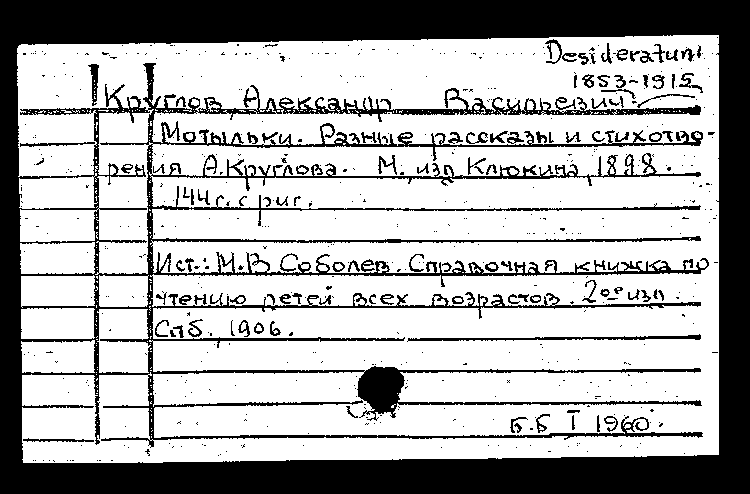 Desideratum
1853-1915
Круглов, Александр Васильевич.
Мотыльки. Разные рассказы и стихотво-
рения А.Круглова. М., изд Клюкина, 1898.
144 с. с рис.
Ист.: М.В. Соболев. Справочная книжка по
чтению детей всех возрастов. 2ое изд.
Спб., 1906.
Б.Б I 1960.